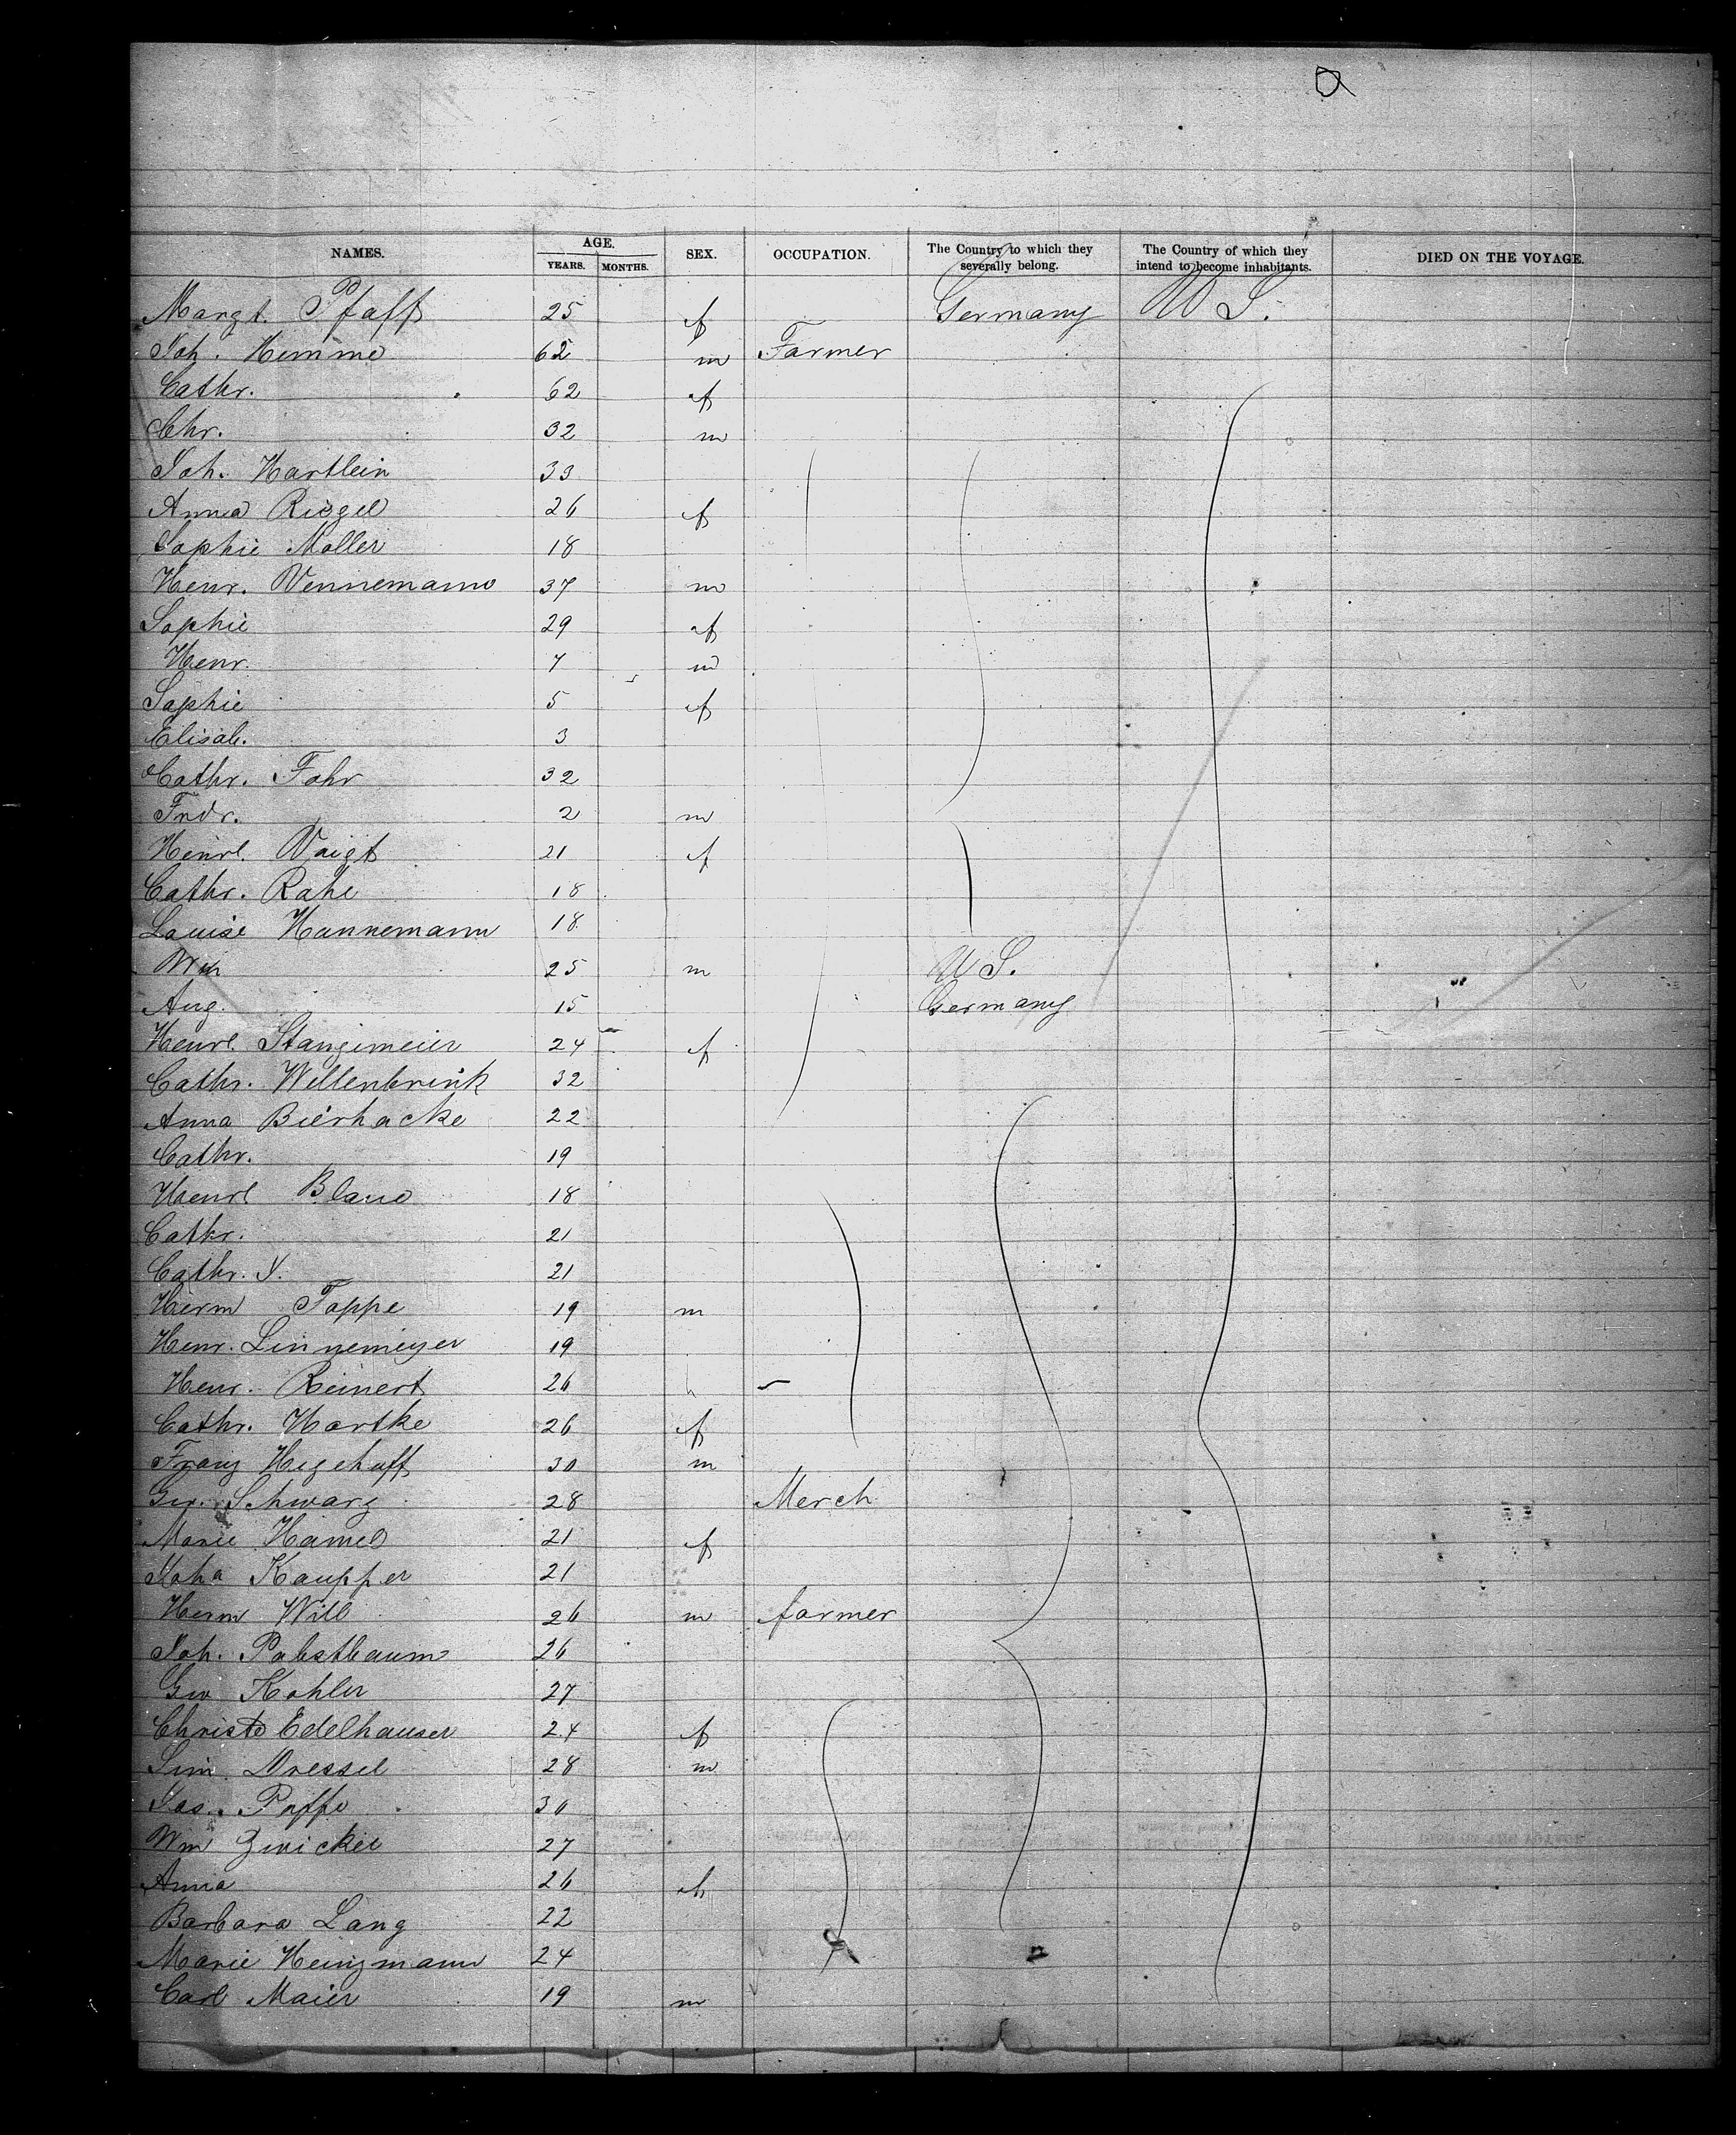 NAMES. AGE. YEARS. MONTHS. SEX. OCCUPATION. The Country to which they severally belong. The Country of which they intend to become inhabitants. DIED ON THE VOYAGE.
Margt. Pfaff 25 f Germany U S.
Joh. Hemme 62 m Farmer
Cathr. 62 f
Chr. 32 m
Joh. Hartlein 33
Anna Riegel 26 f
Sophie Moller 18
Henr. Vennemann 37 m
Sophie 29 f
Henr. 7 m
Sophie 5 f
Elisab. 3
Cathr. Fohr 32
Frdr. 2 m
Henrl. Voigt 21 f
Cathr. Rahe 18
Louise Hannemann 18
Wm 25 m U S.
Aug. 15 Germany
Henrl. Stangemeier 24 f
Cathr. Wellenbrink 32
Anna Bierhacke 22
Cathr. 19
Henrl Blaue 18
Cathr. 21
Cathr. J. 21
Herm Toppe 19 m
Henr. Linnemeyer 19
Henr. Reinert 26
Cathr. Hartke 26 f
Franz Hegehoff 30 m
Geo. Schwarz 28 Merch
Marie Hamel 21 f
Joha Kaupper 21
Herm Will 26 m farmer
Joh. Pabstbaum 26
Geo Kohler 27
Edelhauser 24 f
Sim Dressel 28 m
Jos. Poppe 30
Wm Zwickel 27
Anna 26 f
Barbara Lang 22
Marie Heinzmann 24
Carl Maier 19 m